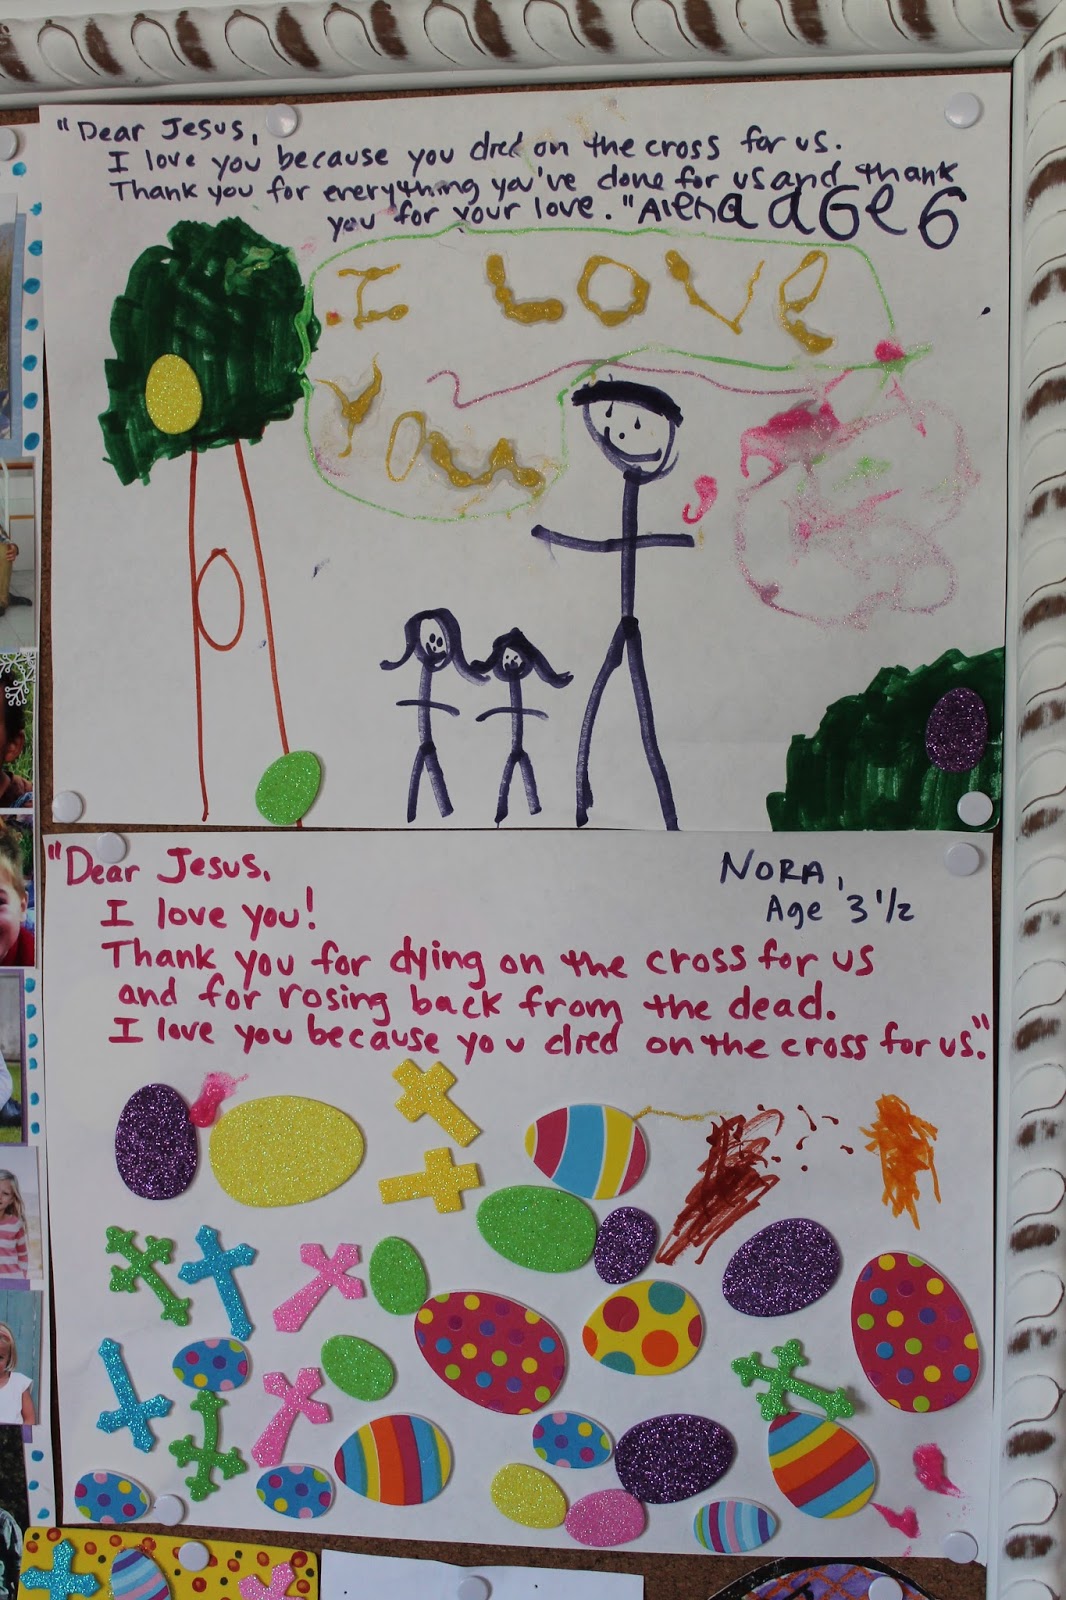 "Dear Jesus,
I love you because you died on the cross for us.
Thank you for everything you've done for us and thank
you for your love." Alena age 6
I LOVe
You
"Dear Jesus,
I love you!
Thank you for dying on the cross for us
and for rosing back from the dead.
I love you because you died on the cross for us."
NORA,
Age 3 1/2